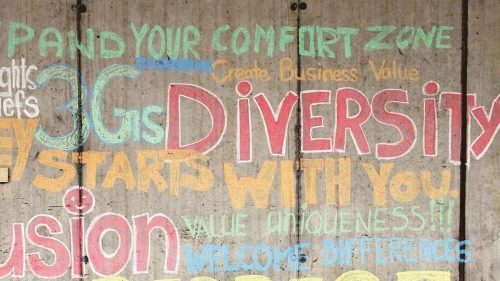 PAND YOUR COMFORT ZONE
ghts
Create Business Value
iefs
3Gis DIVERSITY
EY STARTS WITH YOU.
usion VALUE UNIQUENESS!!!
WELCOME DIFFERENCES